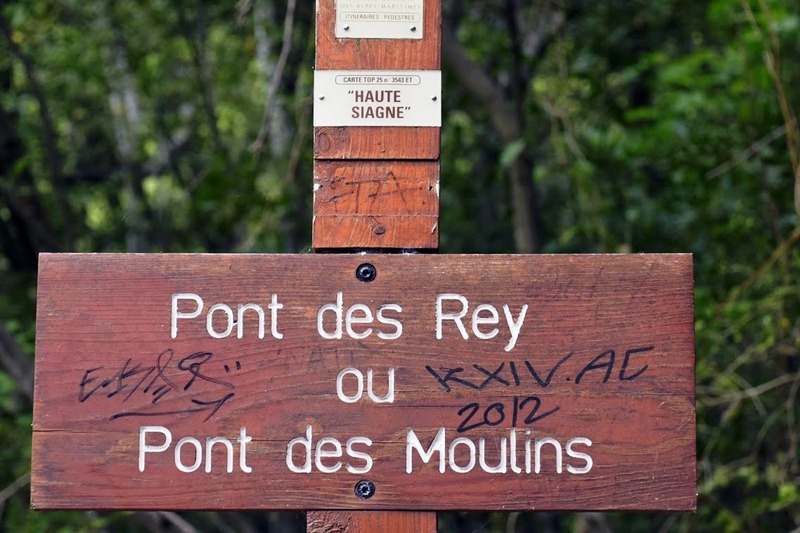 DES ALPES MARITIMES
ITINERAIRES PEDESTRES
CARTE TOP 25 n° 3543 ET
"HAUTE
SIAGNE"
Pont des Rey
ou
KXIV.AC
2012
Pont des Moulins